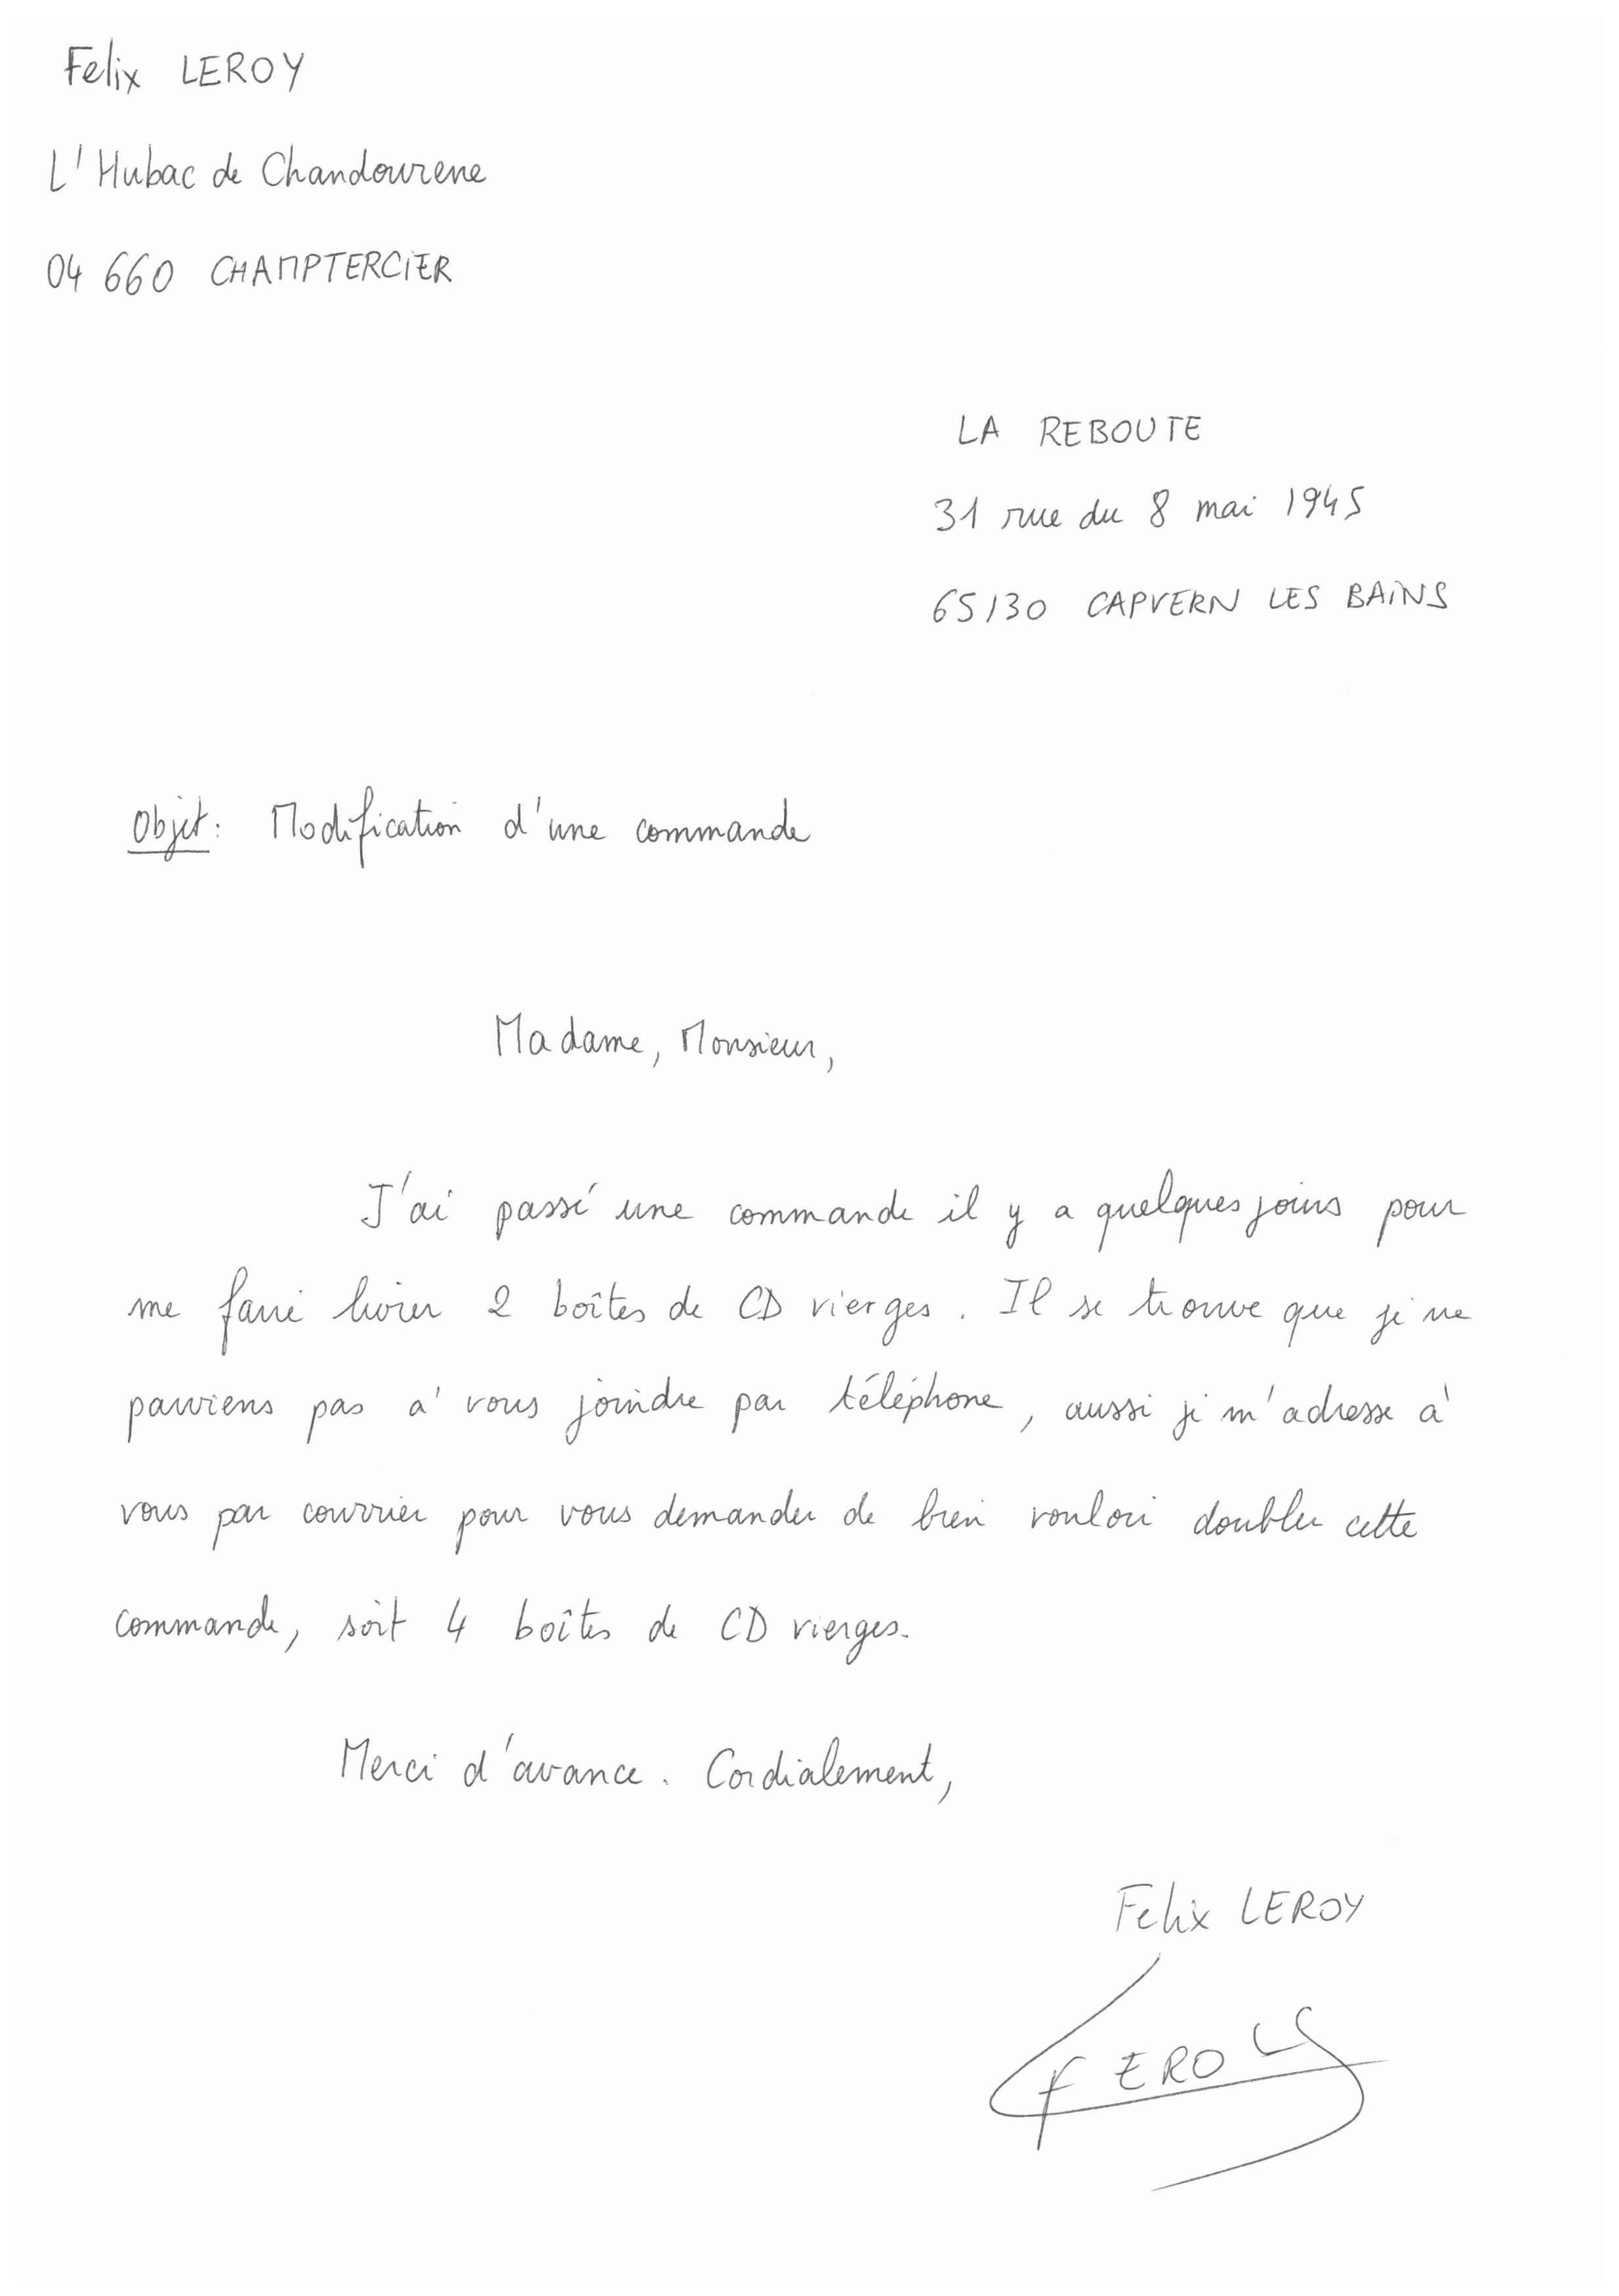 Felix LEROY
L'Hubac de Chandourene
04 660 CHAMPTERCIER
LA REBOUTE
31 rue du 8 mai 1945
65130 CAPVERN LES BAINS
Objet : Modification d'une commande
Madame, Monsieur,
J'ai passé une commande il y a quelques jours pour
me faire livrer 2 boîtes de CD vierges. Il se trouve que je ne
parviens pas à vous joindre par téléphone, aussi je m'adresse à
vous par courrier pour vous demander de bien vouloir doubler cette
commande, soit 4 boîtes de CD vierges.
Merci d'avance. Cordialement,
Felix LEROY